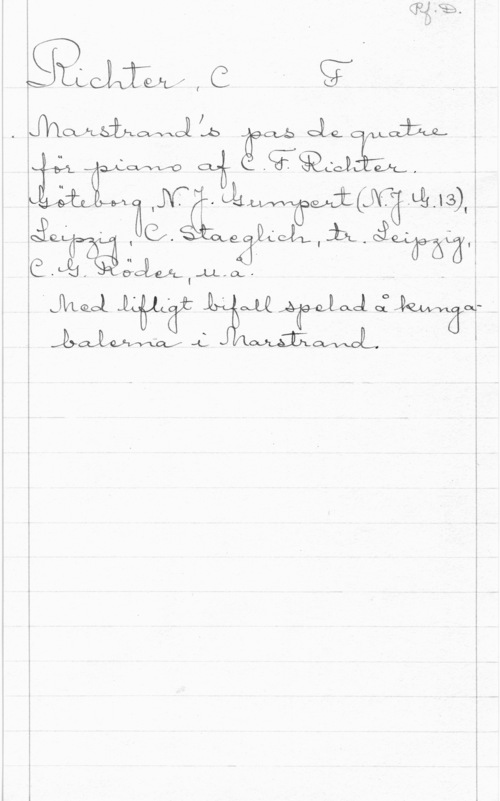 Pf. D.
Richter, C F
Marstrand's pas de quatre
för piano af C. F. Richter.
Göteborg, N. J. Gumpert (N.J.G.13),
Leipzig, C. Staeglich, tr. Leipzig,
C. G. Röder, u.å.
Med lifligt bifall spelad å kunga-
balerna i Marstrand.